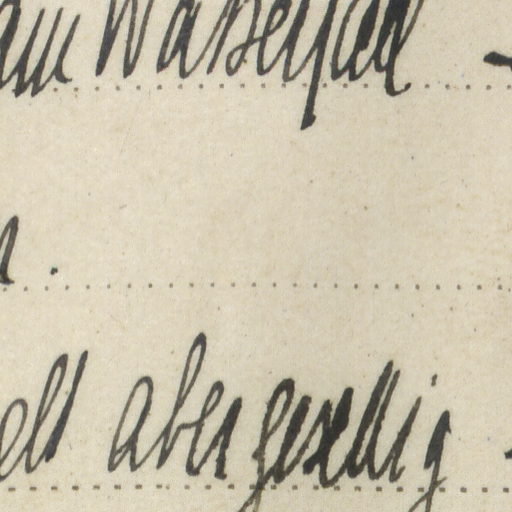 am Wasserfall -
.
aber gesellig -